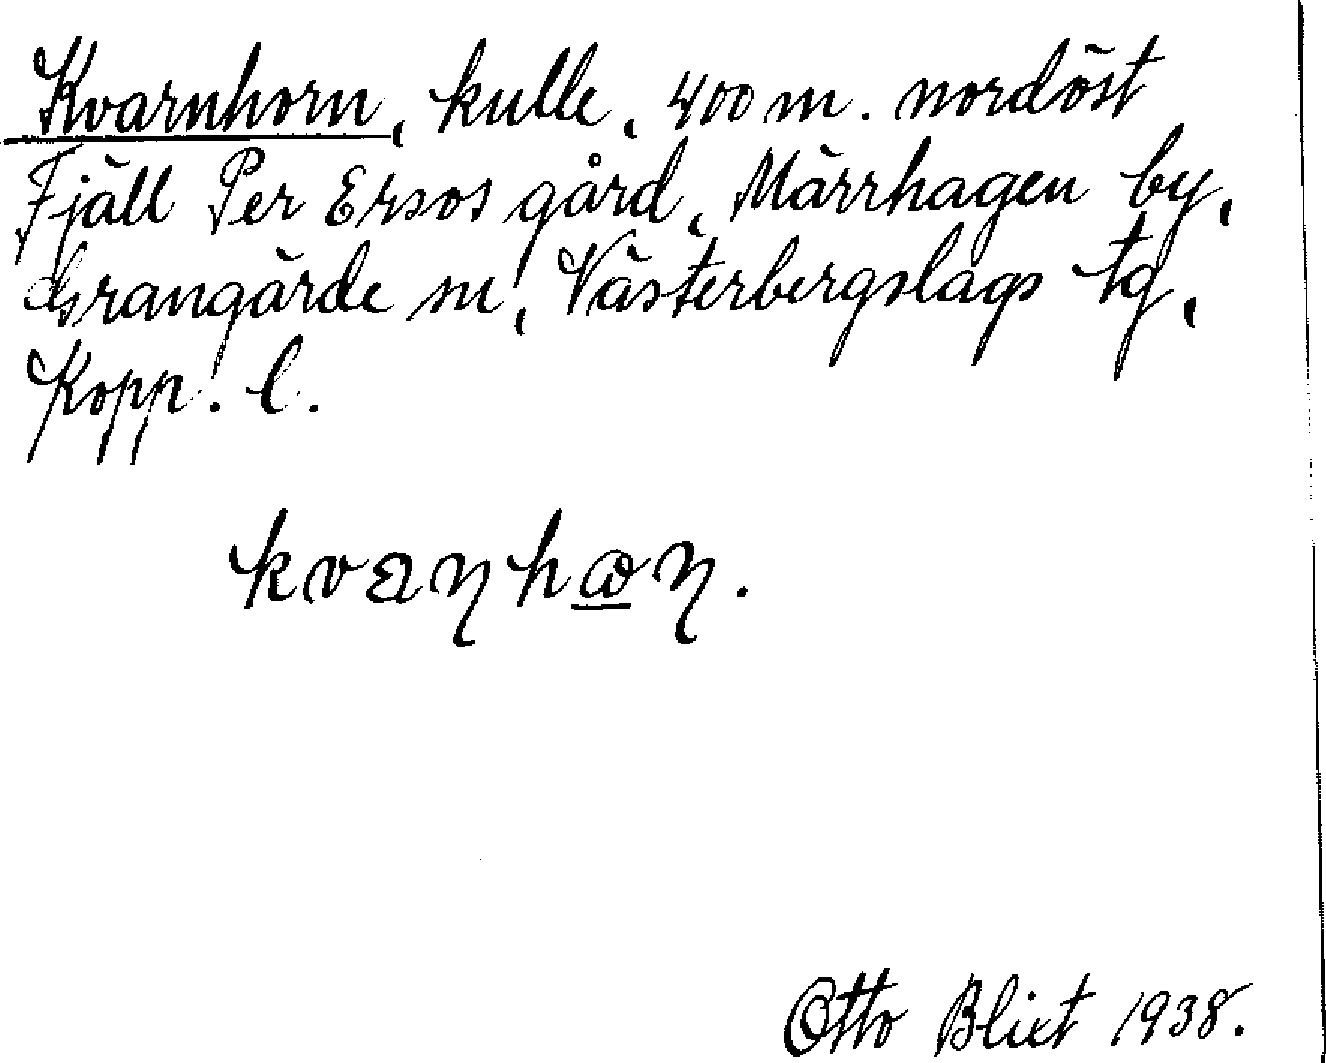 Kvarnhorn, kulle, 400 m. nordöst
Fjäll Per Ersos gård, Märrhagen by,
Grangärde sn, Västerbergslags tg,
Kopp. l.
kvaɳhɷɳ.
Otto Blixt 1938.